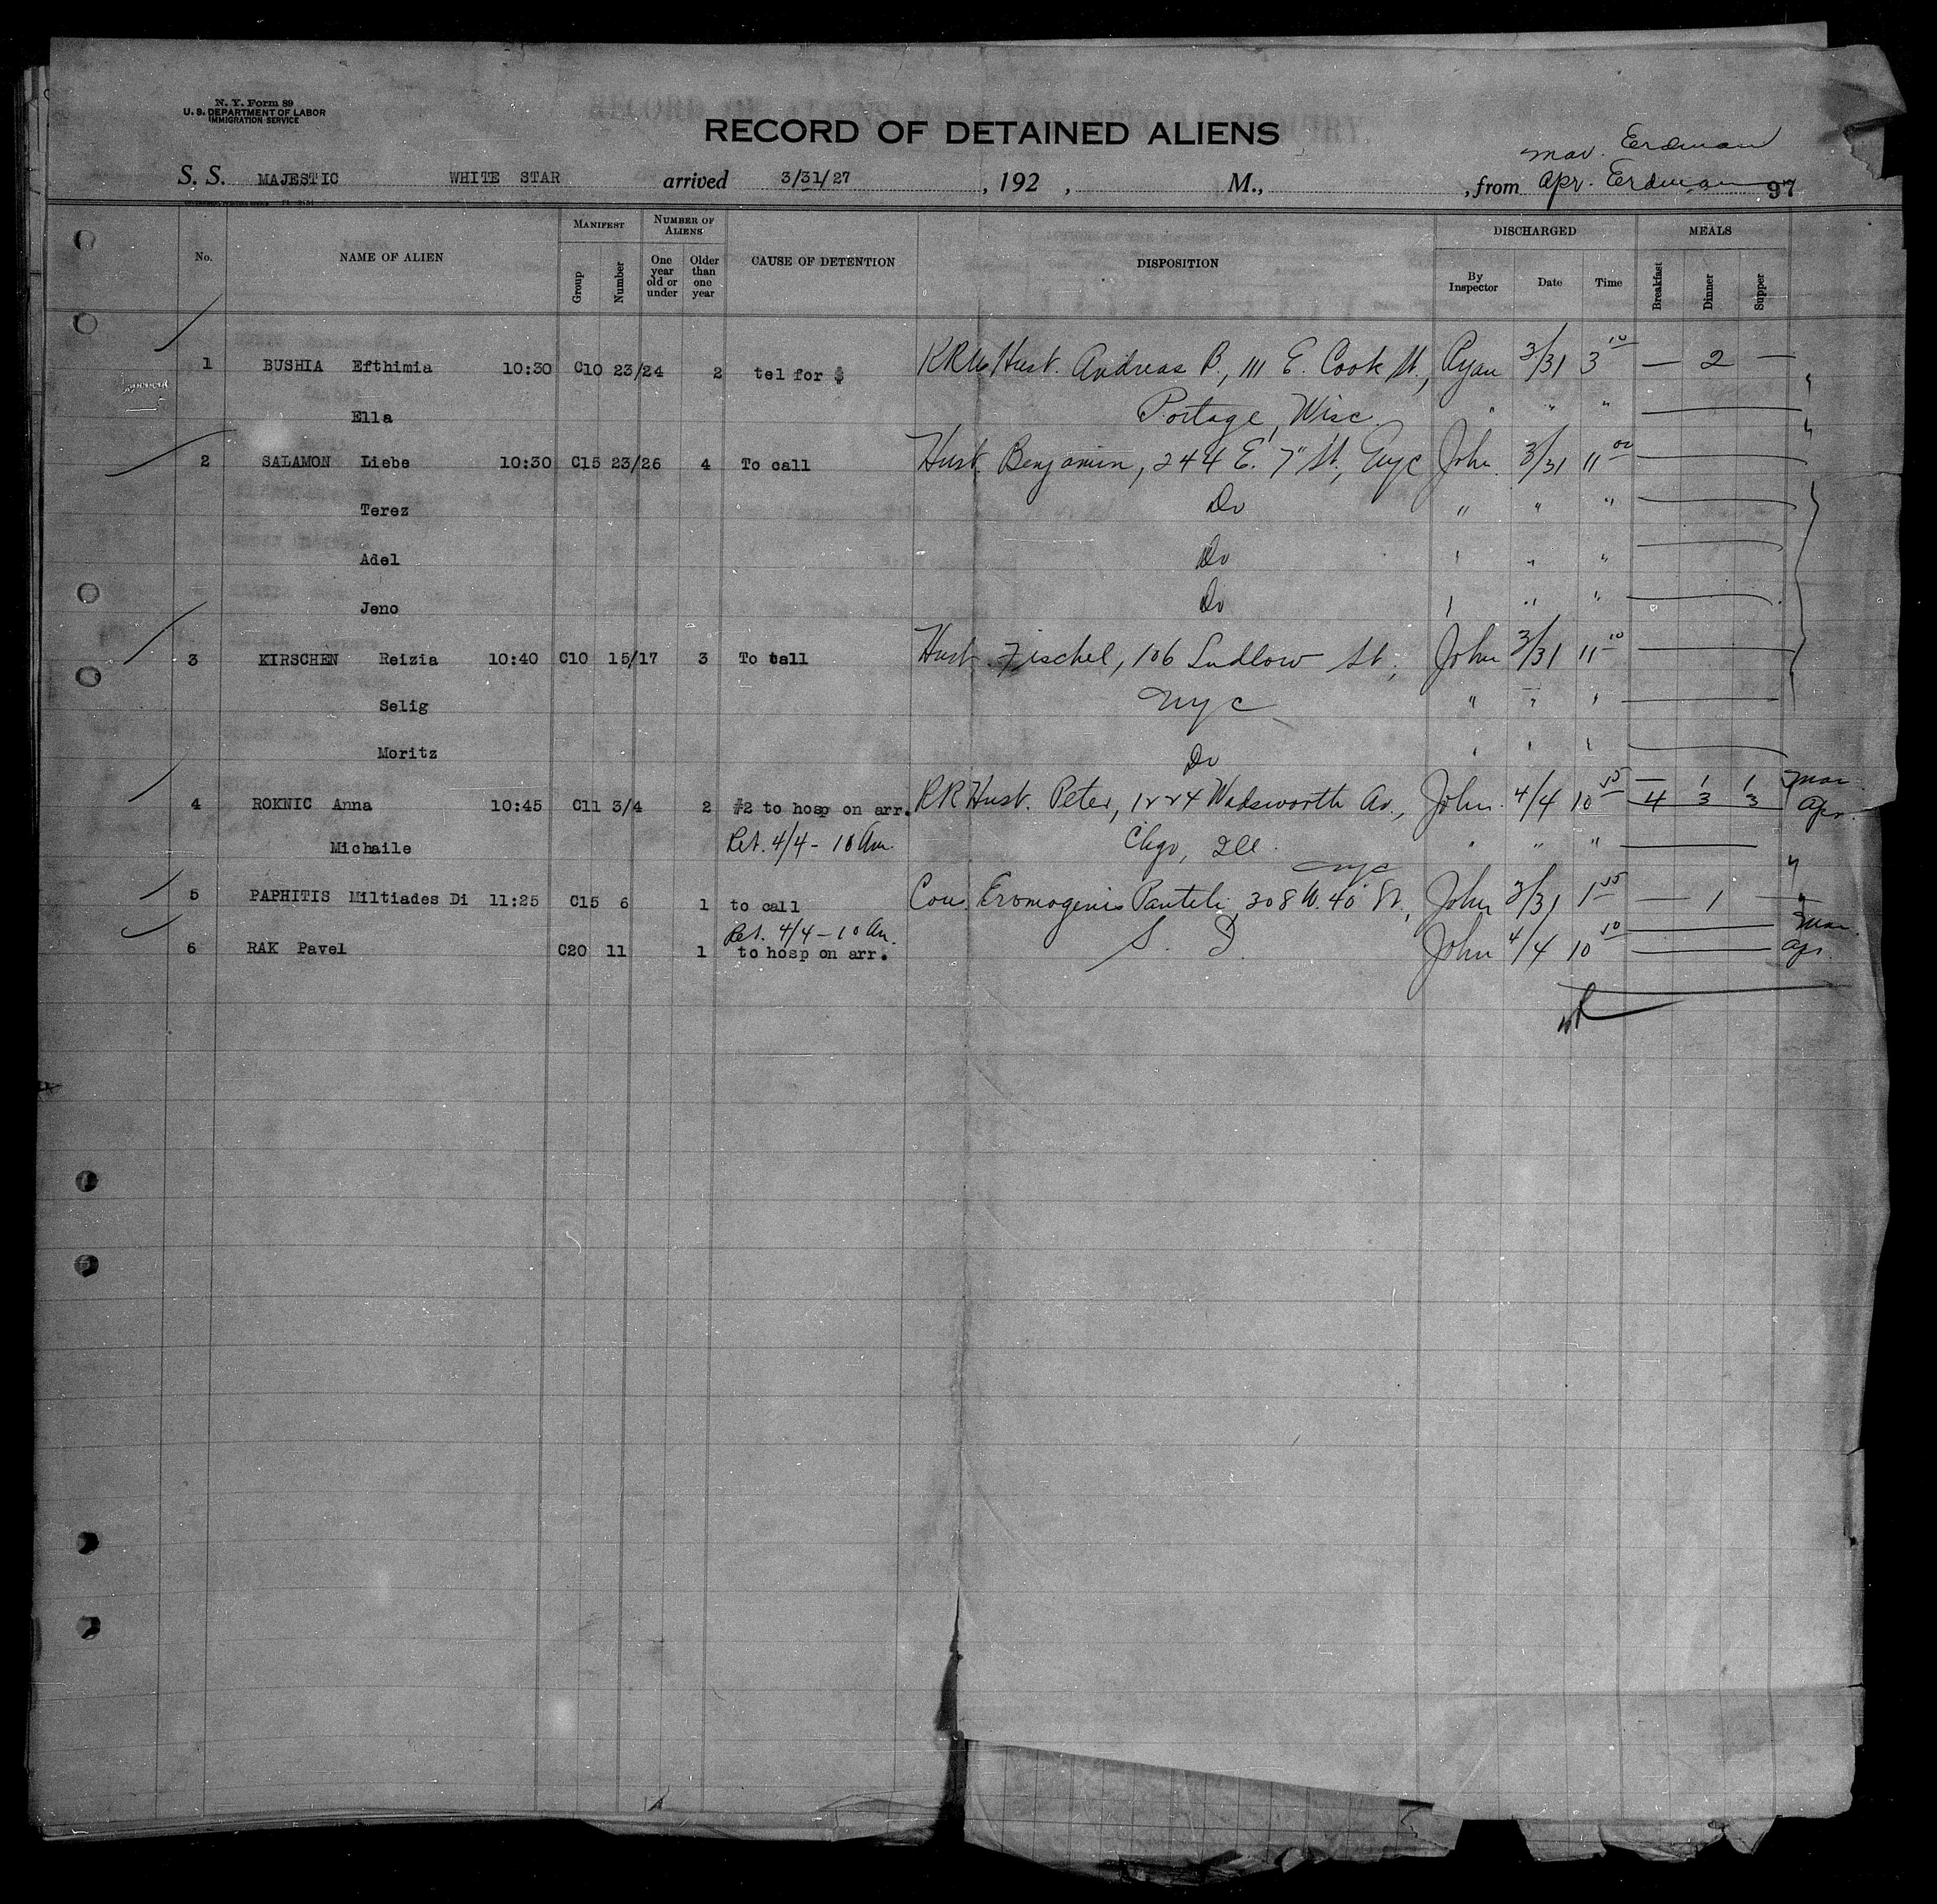 N. Y. Form 89
U. S. DEPARTMENT OF LABOR
IMMIGRATION SERVICE
RECORD OF DETAINED ALIENS
Mar. Erdman
S. S. MAJESTIC WHITE STAR arrived 3/31/27, 192 , M., , from Apr. Erdman 97
No. NAME OF ALIEN MANIFEST Group Number NUMBER OF ALIENS One year old or under Older than one year CAUSE OF DETENTION DISPOSITION DISCHARGED By Inspector Date Time MEALS Breakfast Dinner Supper
1 BUSHIA Efthimia 10:30 C10 23/24 2 tel for $ Hust. Andreas B., 111 E. Cook St., Ryan 3/31 3 10 — 2 —
Ella Portage, Wisc. " " "
2 SALAMON Liebe 10:30 C15 23/26 4 To call Hust. Benjamin, 244 E. 7" St, NYC John 3/31 11 00
Terez Do " " "
Adel Do " " "
Jeno Do " " "
3 KIRSCHEN Reizia 10:40 C10 15/17 3 To call Hust Fischel, 106 Ludlow St, John 3/31 11 10
Selig NYC " " "
Moritz Do " " "
4 ROKNIC Anna 10:45 C11 3/4 2 #2 to hosp on arr. RR Hust. Peter, 1224 Wadsworth Av., John 4/4 10 55 — 1 1 Mar
4 3 3 Apr.
Michaile Ret. 4/4 - 10 Am. Chgo, Ill. " " "
NYC
5 PAPHITIS Miltiades Di 11:25 C15 6 1 to call Cou Eromogenis Panteli, 308 W. 40 St., John 3/31 1 55 — 1 —
Ret. 4/4 - 10 Am. Mar.
6 RAK Pavel C20 11 1 to hosp on arr. S. D. John 4/4 10 50 Apr.